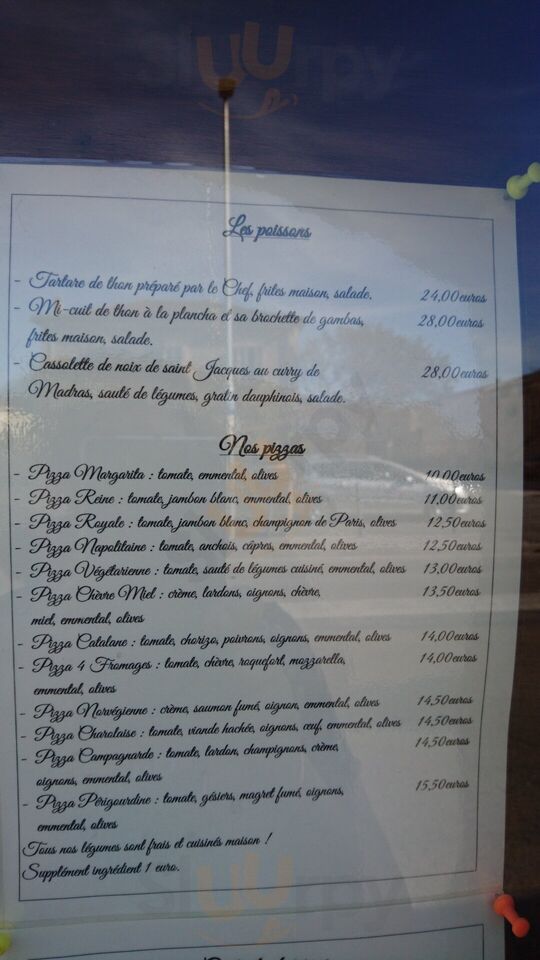 sluurpy
Les poissons
- Tartare de thon préparé par le Chef, frites maison, salade. 24,00euros
- Mi-cuit de thon à la plancha et sa brochette de gambas, 28,00euros
frites maison, salade.
- Cassolette de noix de saint Jacques au curry de 28,00euros
Madras, sauté de légumes, gratin dauphinois, salade.
Nos pizzas
- Pizza Margarita : tomate, emmental, olives 10,00euros
- Pizza Reine : tomate, jambon blanc, emmental, olives 11,00euros
- Pizza Royale : tomate, jambon blanc, champignon de Paris, olives 12,50euros
- Pizza Napolitaine : tomate, anchois, câpres, emmental, olives 12,50euros
- Pizza Végétarienne : tomate, sauté de légumes cuisiné, emmental, olives 13,00euros
- Pizza Chèvre Miel : crème, lardons, oignons, chèvre, 13,50euros
miel, emmental, olives
- Pizza Catalane : tomate, chorizo, poivrons, oignons, emmental, olives 14,00euros
- Pizza 4 Fromages : tomate, chèvre, roquefort, mozzarella, 14,00euros
emmental, olives
- Pizza Norvégienne : crème, saumon fumé, oignon, emmental, olives 14,50euros
- Pizza Charolaise : tomate, viande hachée, oignons, œuf, emmental, olives 14,50euros
- Pizza Campagnarde : tomate, lardon, champignons, crème, 14,50euros
oignons, emmental, olives
- Pizza Périgourdine : tomate, gésiers, magret fumé, oignons, 15,50euros
emmental, olives
Tous nos légumes sont frais et cuisinés maison !
Supplément ingrédient 1 euro.
sluurpy